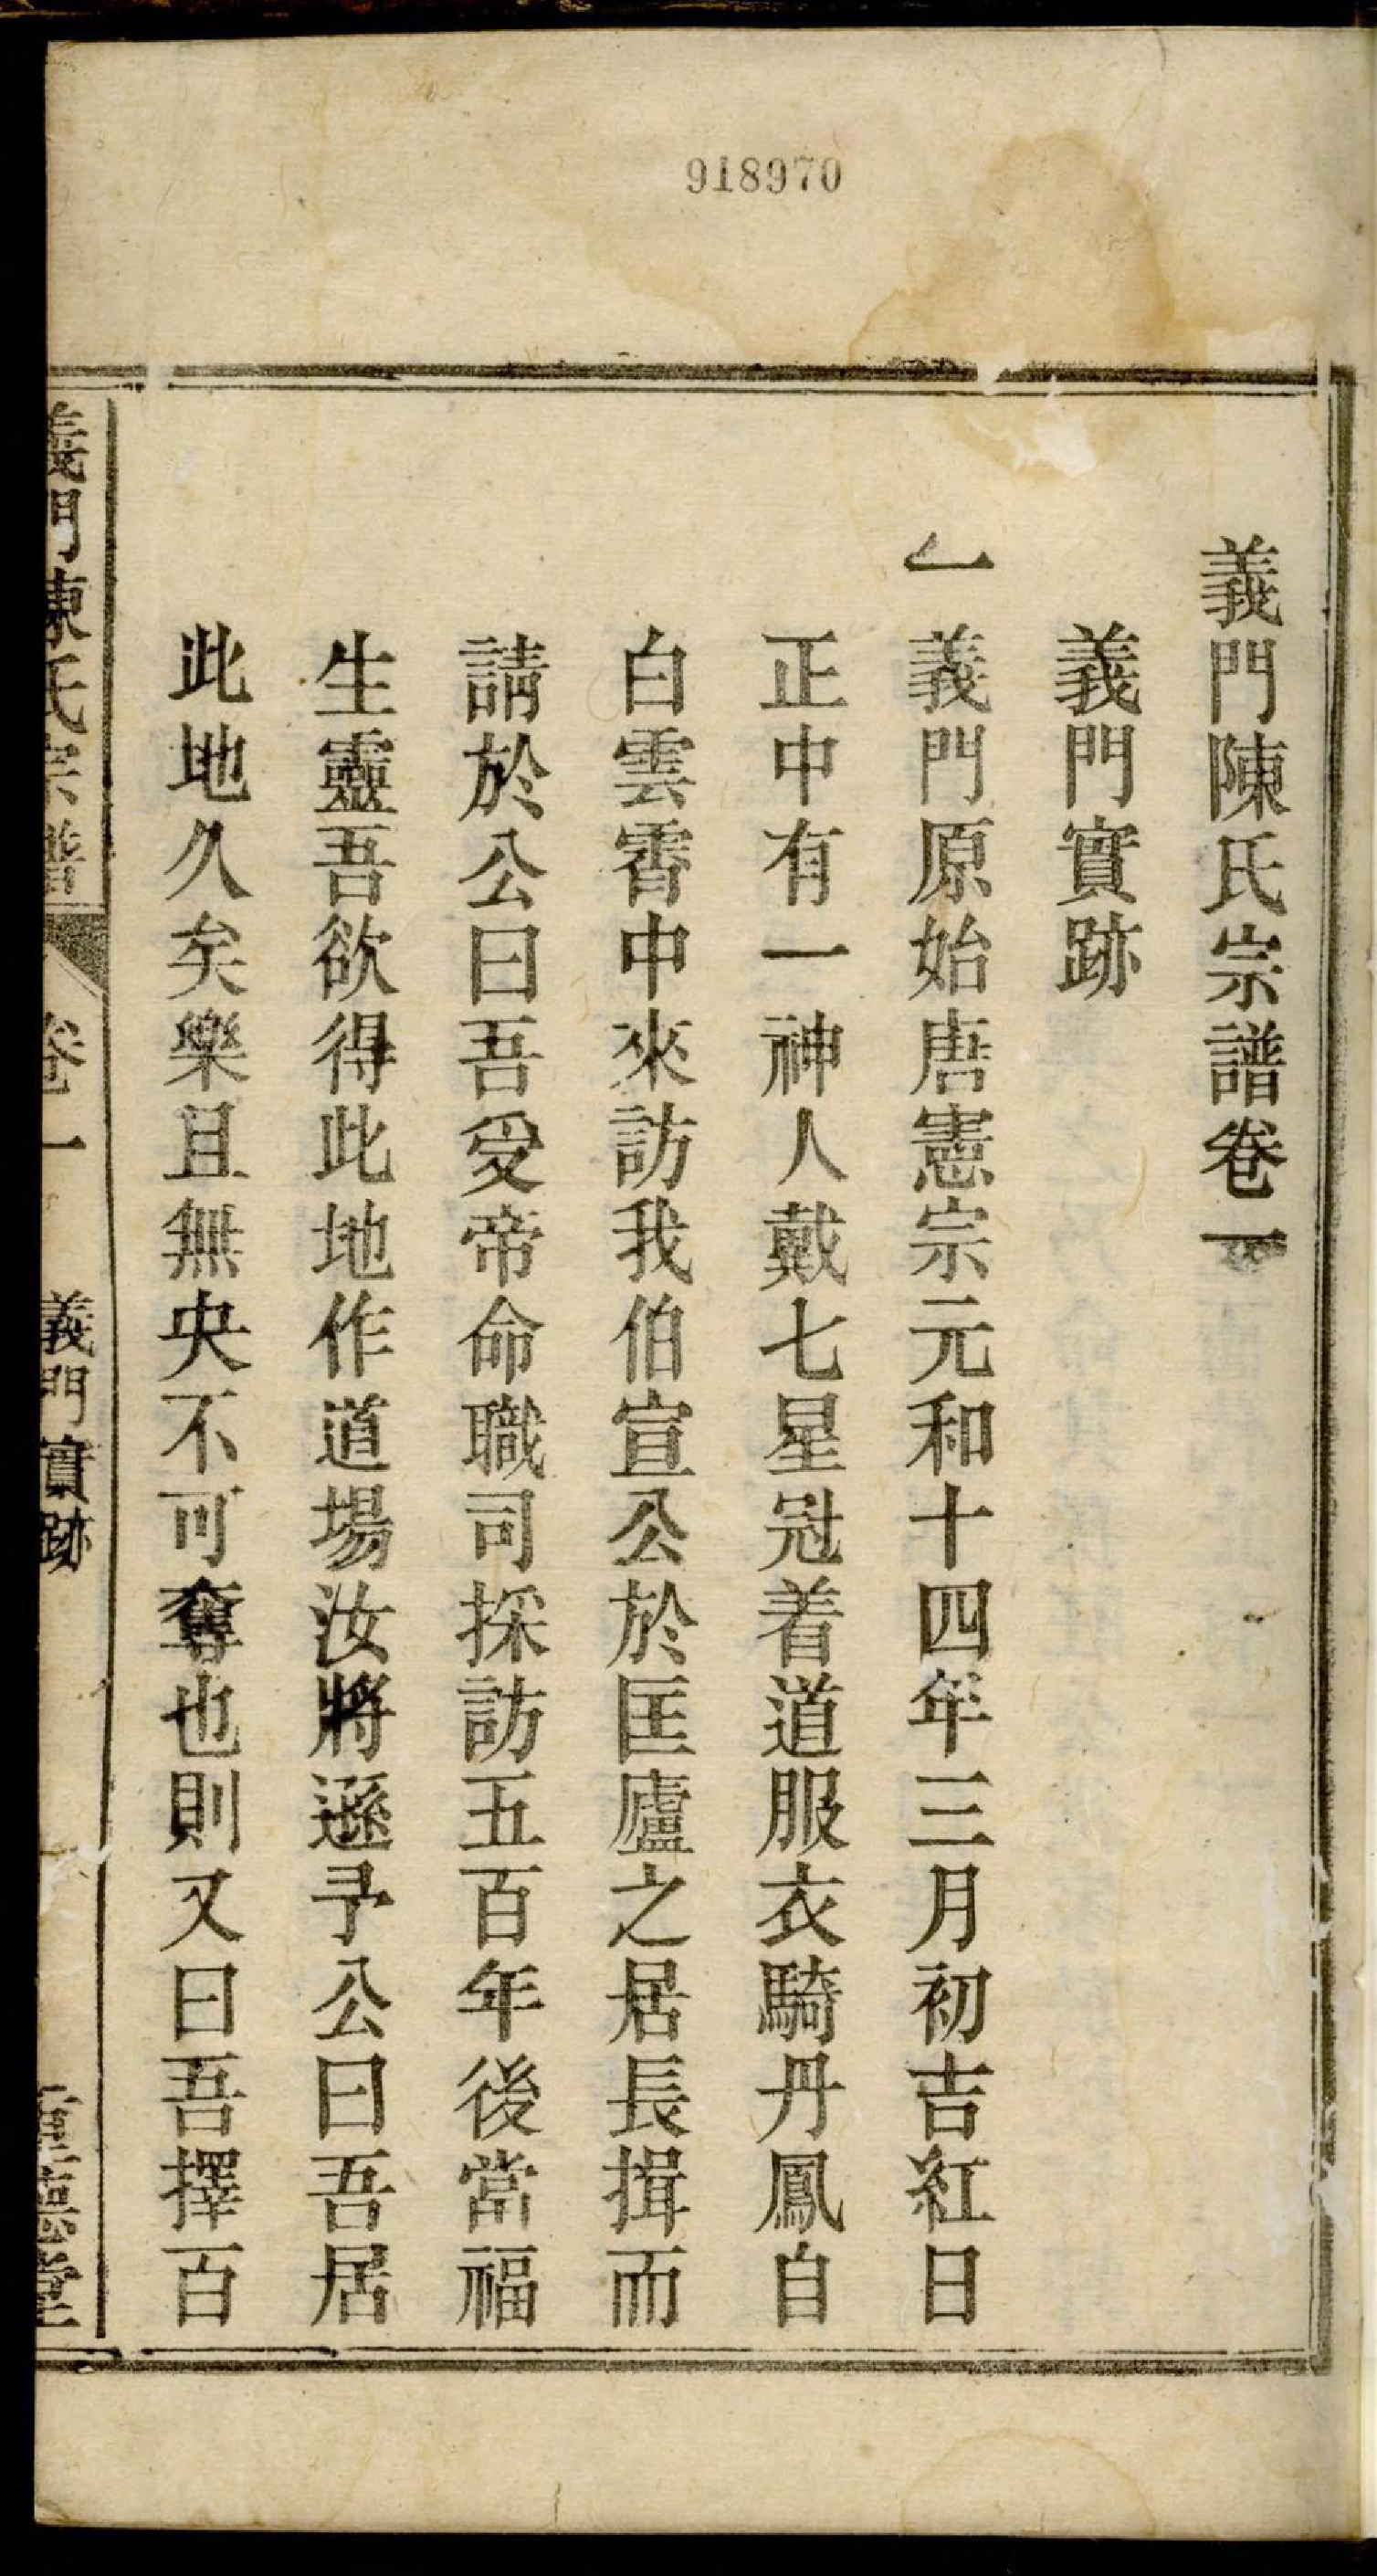 918970
義門陳氏宗譜卷一
義門實跡
一義門原始唐憲宗元和十四年三月初吉紅日
正中有一神人戴七星冠着道服衣騎丹鳳自
白雲霄中來訪我伯宣公於匡廬之居長揖而
請於公曰吾受帝命職司採訪五百年後當福
生靈吾欲得此地作道場汝將遜予公曰吾居
此地久矣樂且無央不可奪也則又曰吾擇百
義門陳氏宗譜 卷一 義門實跡 德堂